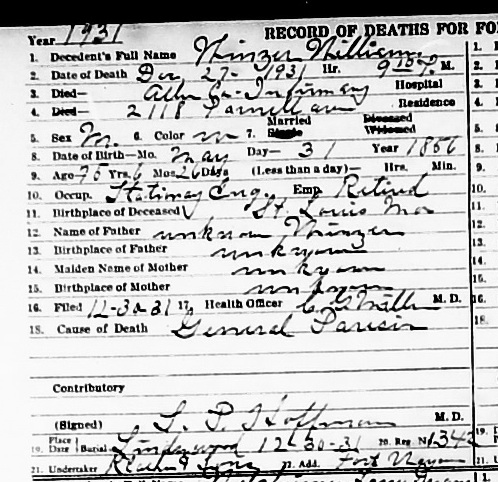 RECORD OF DEATHS FOR FO
Year 1931
1. Decedent's Full Name Minzer William
2. Date of Death Dec 27 - 1931 Hr. 9 15 P. M.
3. Died— Allen Co. Infirmary Hospital
4. Died— 2118 Parnell ave Residence
5. Sex M. 6. Color W 7. Married Single Divorced Widowed
8. Date of Birth—Mo. May Day— 31 Year 1856
9. Age 75 Yrs. 6 Mos. 26 Days (Less than a day)— Hrs. Min.
10. Occup. Stationary Eng. Emp. Retired
11. Birthplace of Deceased St. Louis Mo
12. Name of Father unknown Minzer
13. Birthplace of Father unknown
14. Maiden Name of Mother unknown
15. Birthplace of Mother unknown
16. Filed 12-30-31 17. Health Officer M. D.
18. Cause of Death General Paresis
Contributory
(Signed) L. P. Hoffman M. D.
19. Place Date Burial Lindenwood 12-30-31 20. Reg. No. 1342
21. Undertaker & Sons 22. Add. Fort Wayne